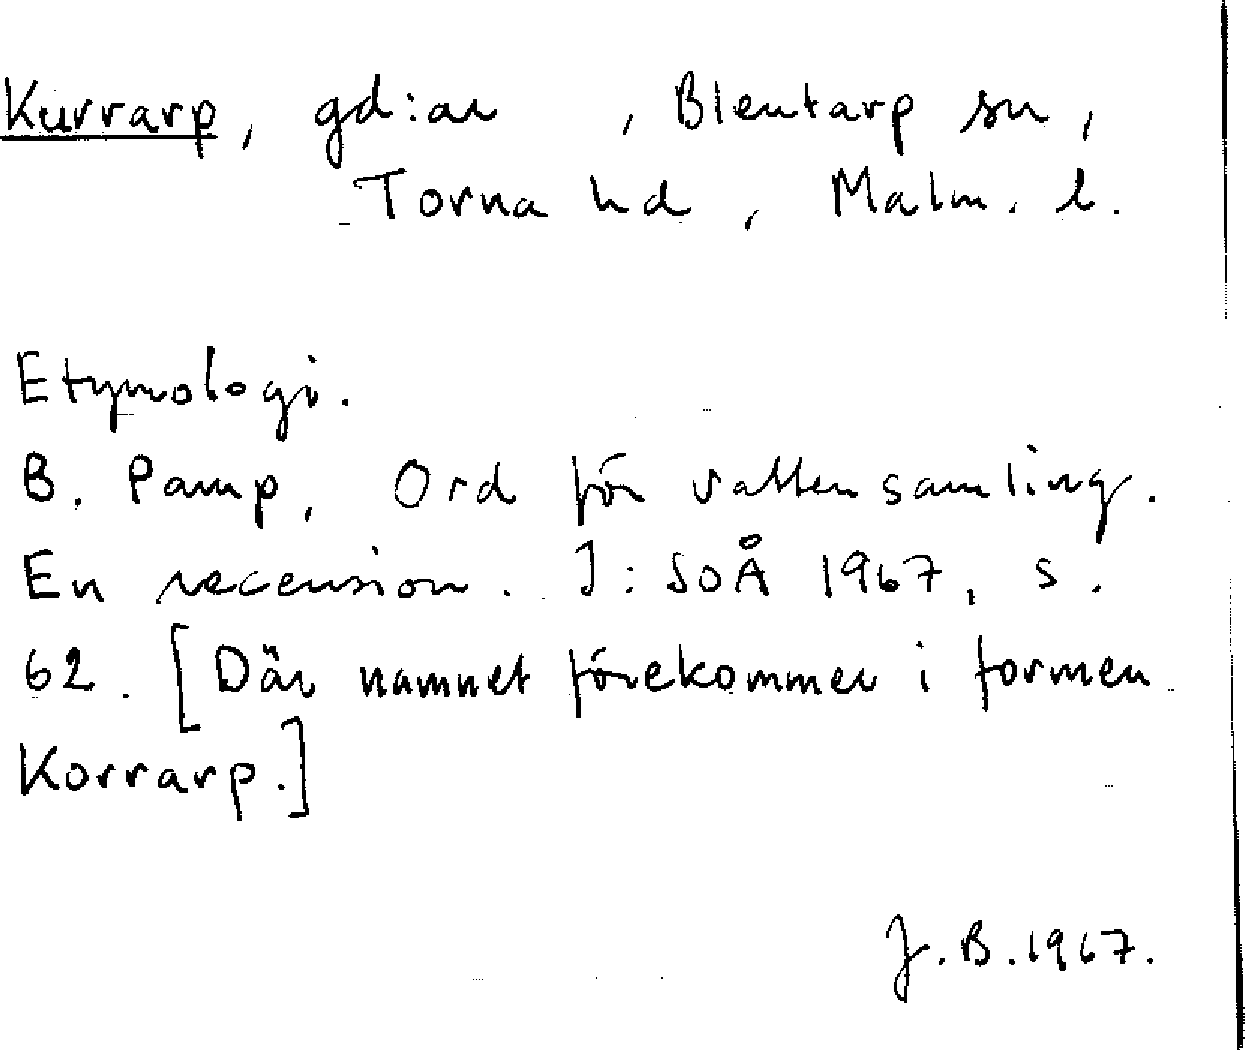 Kurrarp, gd:ar , Blentarp sn,
Torna hd, Malm. l.
Etymologi.
B. Pamp, Ord för vattensamling.
En recension. I: SOÅ 1967, s.
62. [Där namnet förekommer i formen
Korrarp.]
J.B.1967.